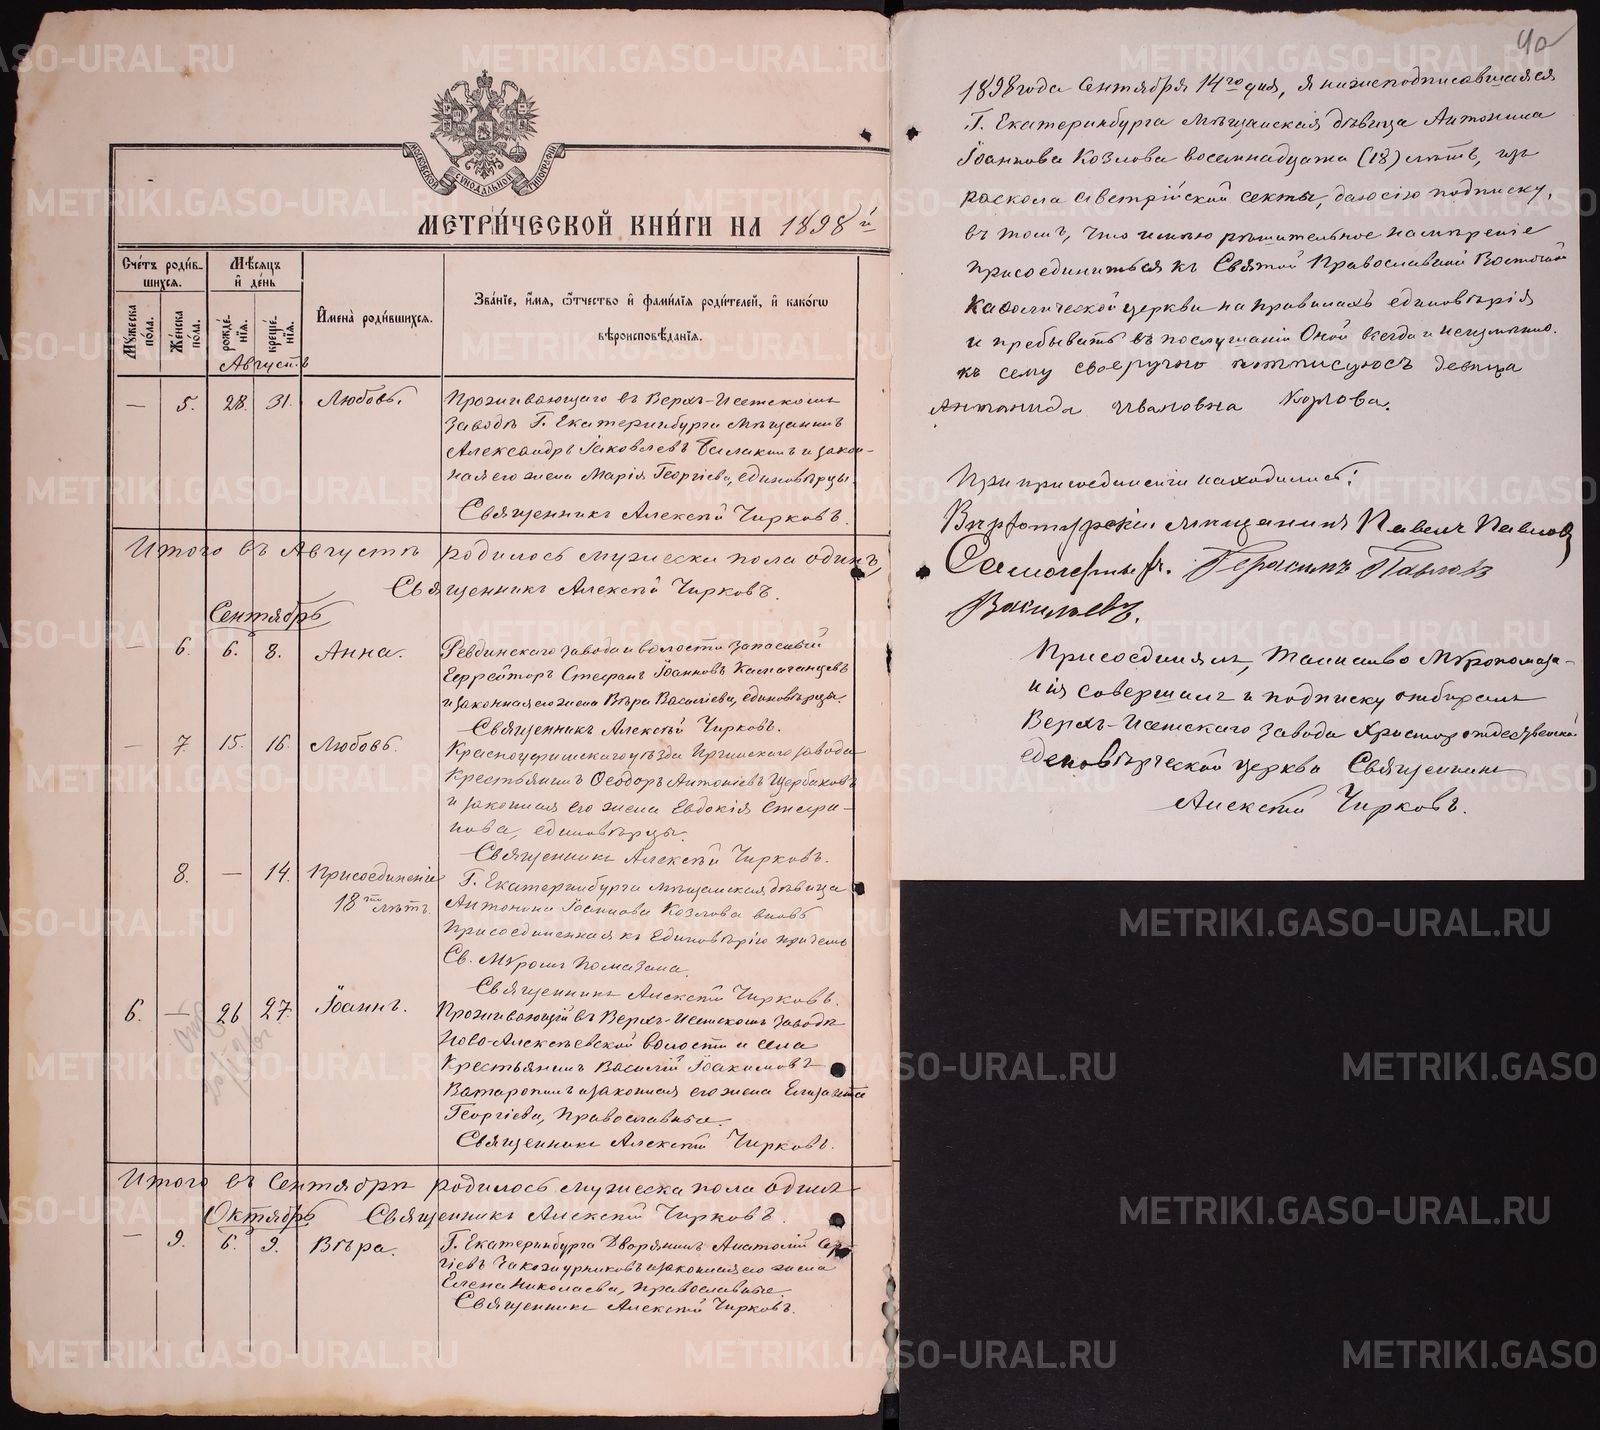 МОСКОВСКОЙ СѴНОДАЛЬНОЙ ТИПОГРАФІИ
МЕТРИ́ЧЕСКОЙ КНИ́ГИ НА 1898й
Сче́тъ роди́в-
шихся.
Мѣсяцъ
и҆ де́нь
И҆мена̀ роди́вшихся.
Зва́ніе, и҆́мя, ѻ҆́тчество и҆ фами́лія роди́телей, и҆ како́гѡ
вѣроисповѣ́данія.
Му́жеска по́ла.
Же́нска по́ла.
рожде́нія.
креще́нія.
Августъ
— 5. 28. 31. Любовь.
Проживающаго въ Верхъ-Исетскомъ
заводѣ Г. Екатеринбурга Мѣщанинъ
Александръ Іаковлевъ и закон-
ная его жена Марія Георгіева, единовѣрцы.
Священникъ Алексѣй Чирковъ.
Итого въ Августѣ родилось мужеска пола одинъ,
Священникъ Алексѣй Чирковъ.
Сентябрь
— 6. 6. 8. Анна.
Ревдинскаго завода и волости запасный
Ефрейторъ Стефанъ Іоанновъ
и законная его жена Вѣра Василіева, единовѣрцы.
Священникъ Алексѣй Чирковъ.
— 7. 15. 16. Любовь.
Красноуфимскаго уѣзда Иргинскаго завода
Крестьянинъ Ѳеодоръ Антоніевъ Щербаковъ
и законная его жена Евдокія Стефа-
нова, единовѣрцы.
Священникъ Алексѣй Чирковъ.
8. — 14. Присоединеніе
18ти лѣтъ.
Г. Екатеринбурга мѣщанская дѣвица
Антонина Іоаннова Козлова вновь
присоединенная къ Единовѣрію причемъ
Св. Мѵромъ помазана.
Священникъ Алексѣй Чирковъ.
6. — 26 27. Іоаннъ.
Проживающій въ Верхъ-Исетскомъ заводѣ
Ново-Алексѣевской волости и села
Крестьянинъ Василій Іоакимовъ
Ватаропинъ и законная его жена Елизавета
Георгіева, Православные.
Священникъ Алексѣй Чирковъ.
Итого въ Сентябрѣ родилось мужеска пола одинъ
Октябрь Священникъ Алексѣй Чирковъ.
— 9. 6. 9. Вѣра.
Г. Екатеринбурга Дворянинъ Анатолій Сер-
гіевъ и законная его жена
Елена Николаева, православные.
Священникъ Алексѣй Чирковъ.
1898 года Сентября 14го дня, я нижеподписавшаяся
Г. Екатеринбурга мѣщанская дѣвица Антонина
Іоаннова Козлова восемнадцати (18) лѣтъ, изъ
раскола Австрійской секты, даю сію подписку,
въ томъ, что имѣю рѣшительное намѣреніе
присоединиться къ Святой Православной Восточной
Каѳолической церкви на правилахъ единовѣрія
и пребывать въ послушаніи Оной всегда и неизмѣнно.
къ сему своеручно потписуюсь девица
Антанида Ивановна Козлова.
При присоединеніи находились:
Верхотурскій мѣщанинъ Павелъ Павловъ
Герасимъ Павловъ
Васильевъ.
Присоединялъ, Таинство Мѵропомаза-
нія совершалъ и подписку отбиралъ
Верхъ-Исетскаго завода Христорождественской
единовѣрческой церкви Священникъ
Алексѣй Чирковъ.
METRIKI.GASO-URAL.RU